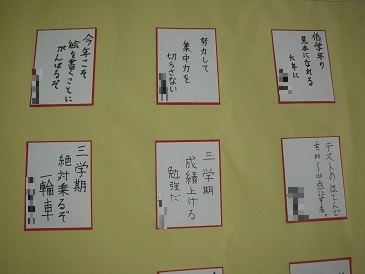 低学年の
見本になれる
六年に
努力して
集中力を
切らさない
今年こそ
絵を書くことに
がんばるぞ
テストのほとんどで
三学期
成績上げる
勉強だ
三学期
絶対乗るぞ
一輪車